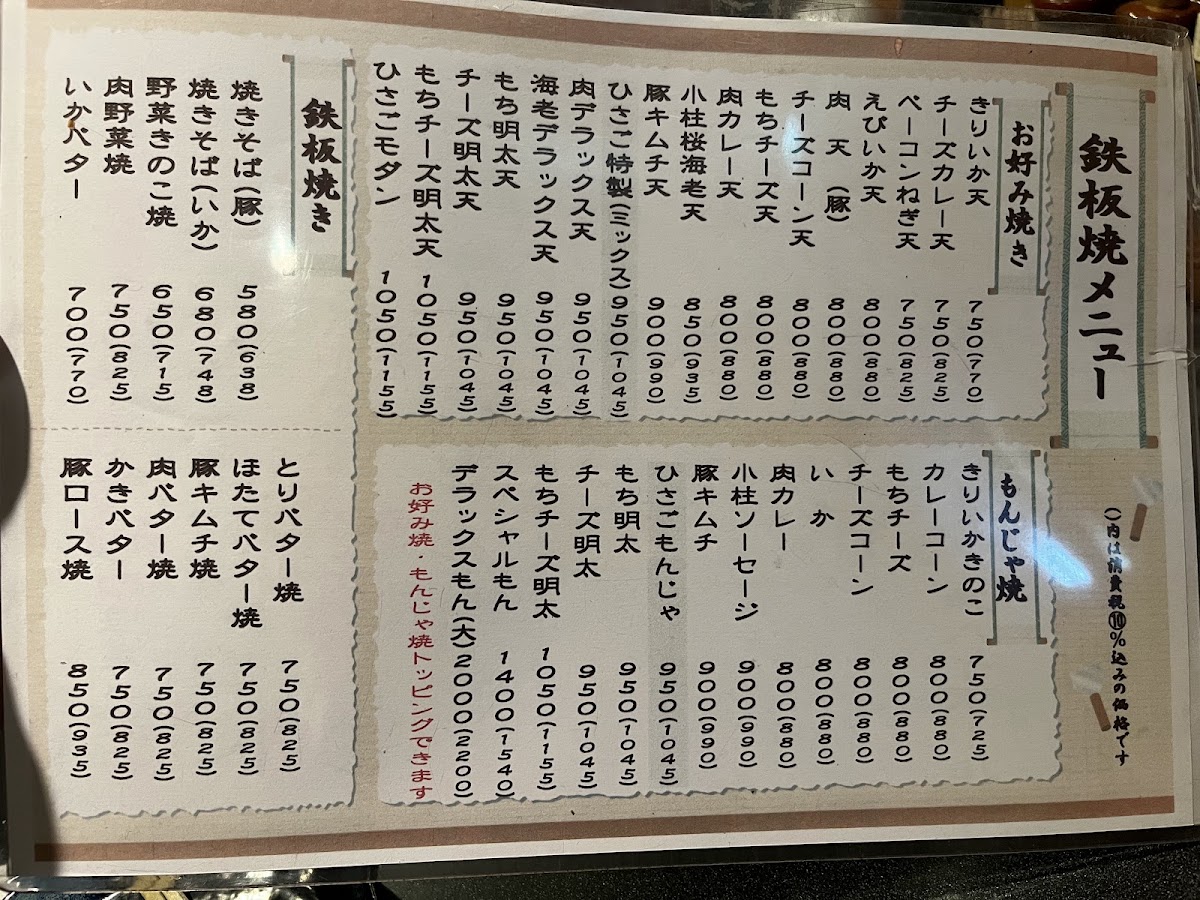 鉄板焼メニュー
()内は消費税⑩%込みの価格です
お好み焼き
きりいか天 750(770)
チーズカレー天 750(825)
ベーコンねぎ天 750(825)
えびいか天 800(880)
肉天(豚) 800(880)
チーズコーン天 800(880)
もちチーズ天 800(880)
肉カレー天 800(880)
小柱桜海老天 850(935)
豚キムチ天 900(990)
ひさご特製(ミックス) 950(1045)
肉デラックス天 950(1045)
海老デラックス天 950(1045)
もち明太天 950(1045)
チーズ明太天 950(1045)
もちチーズ明太天 1050(1155)
ひさごモダン 1050(1155)
もんじゃ焼
きりいかきのこ 750(725)
カレーコーン 800(880)
もちチーズ 800(880)
チーズコーン 800(880)
いか 800(880)
肉カレー 800(880)
小柱ソーセージ 900(990)
豚キムチ 900(990)
ひさごもんじゃ 950(1045)
もち明太 950(1045)
チーズ明太 950(1045)
もちチーズ明太 1050(1155)
スペシャルもん 1400(1540)
デラックスもん(大) 2000(2200)
お好み焼・もんじゃ焼トッピングできます
鉄板焼き
焼きそば(豚) 580(638)
焼きそば(いか) 680(748)
野菜きのこ焼 650(715)
肉野菜焼 750(825)
いかバター 700(770)
とりバター焼 750(825)
ほたてバター焼 750(825)
豚キムチ焼 750(825)
肉バター焼 750(825)
かきバター 750(825)
豚ロース焼 850(935)